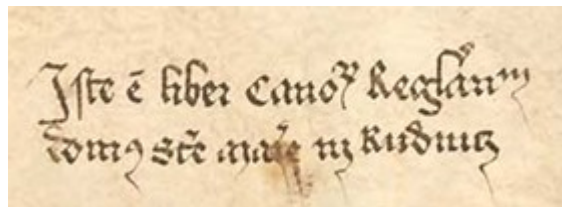 Iste ē liber Canoꝝ Regla̅riu̅
domꝰ Sc̄e marie in Rudnicz